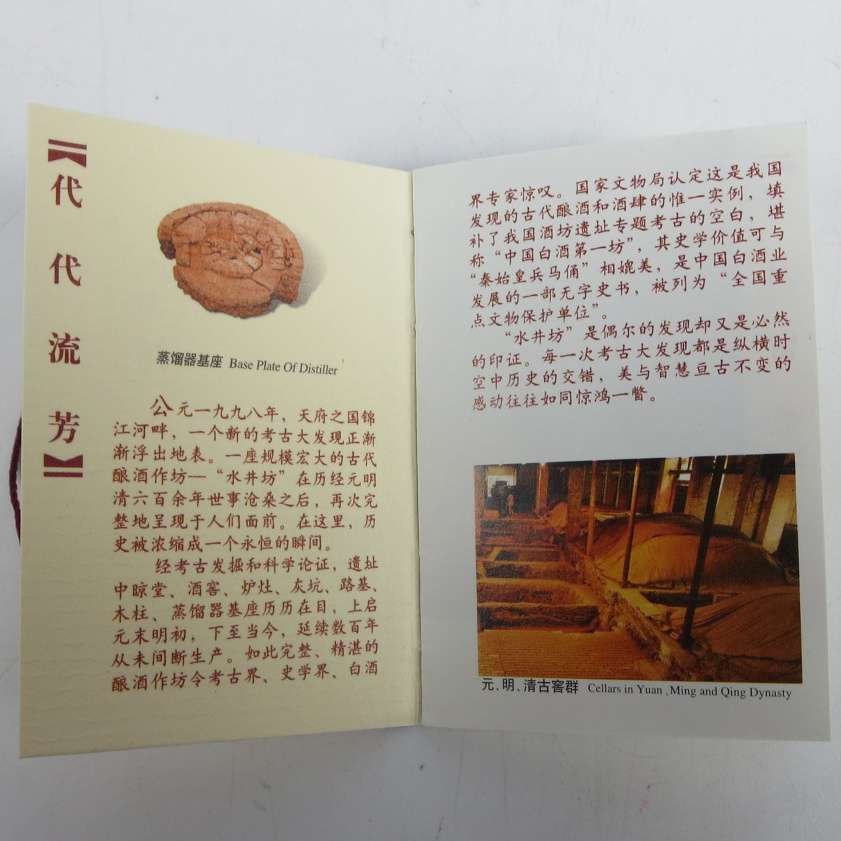 【代代流芳】
蒸馏器基座 Base Plate Of Distiller
公元一九九八年，天府之国锦
江河畔，一个新的考古大发现正渐
渐浮出地表。一座规模宏大的古代
酿酒作坊—“水井坊”在历经元明
清六百余年世事沧桑之后，再次完
整地呈现于人们面前。在这里，历
史被浓缩成一个永恒的瞬间。
经考古发掘和科学论证，遗址
中晾堂、酒窖、炉灶、灰坑、路基、
木柱、蒸馏器基座历历在目，上启
元末明初，下至当今，延续数百年
从未间断生产。如此完整、精湛的
酿酒作坊令考古界、史学界、白酒
界专家惊叹。国家文物局认定这是我国
发现的古代酿酒和酒肆的惟一实例，填
补了我国酒坊遗址专题考古的空白，堪
称“中国白酒第一坊”，其史学价值可与
“秦始皇兵马俑”相媲美，是中国白酒业
发展的一部无字史书，被列为“全国重
点文物保护单位”。
“水井坊”是偶尔的发现却又是必然
的印证。每一次考古大发现都是纵横时
空中历史的交错，美与智慧亘古不变的
感动往往如同惊鸿一瞥。
元、明、清古窖群 Cellars in Yuan ,Ming and Qing Dynasty